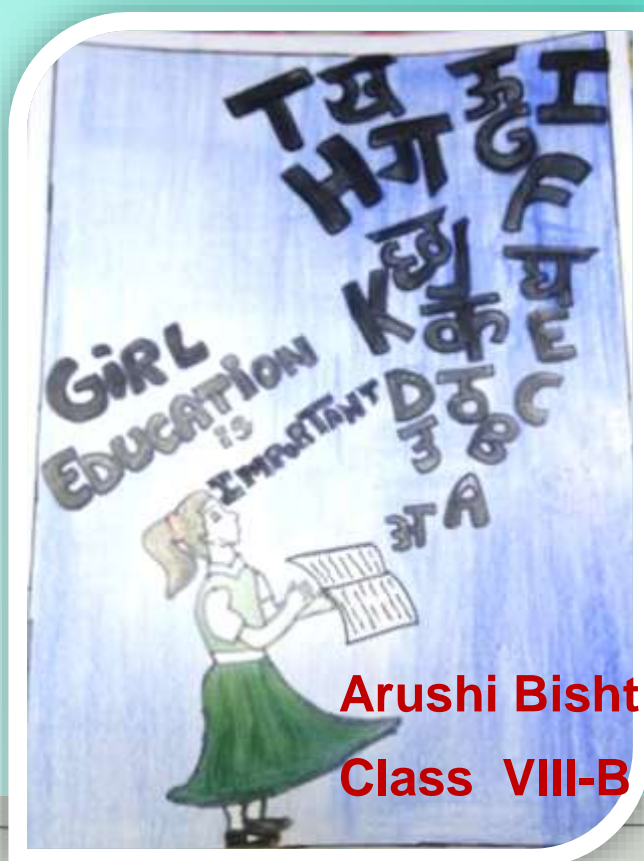 T ख ऊ I
H ग G
F
छ J घ
K क E
D ठ C
उ 8
अ A
GiRL
EDUCATiON
IS
IMPORTANT
Arushi Bisht
Class VIII-B